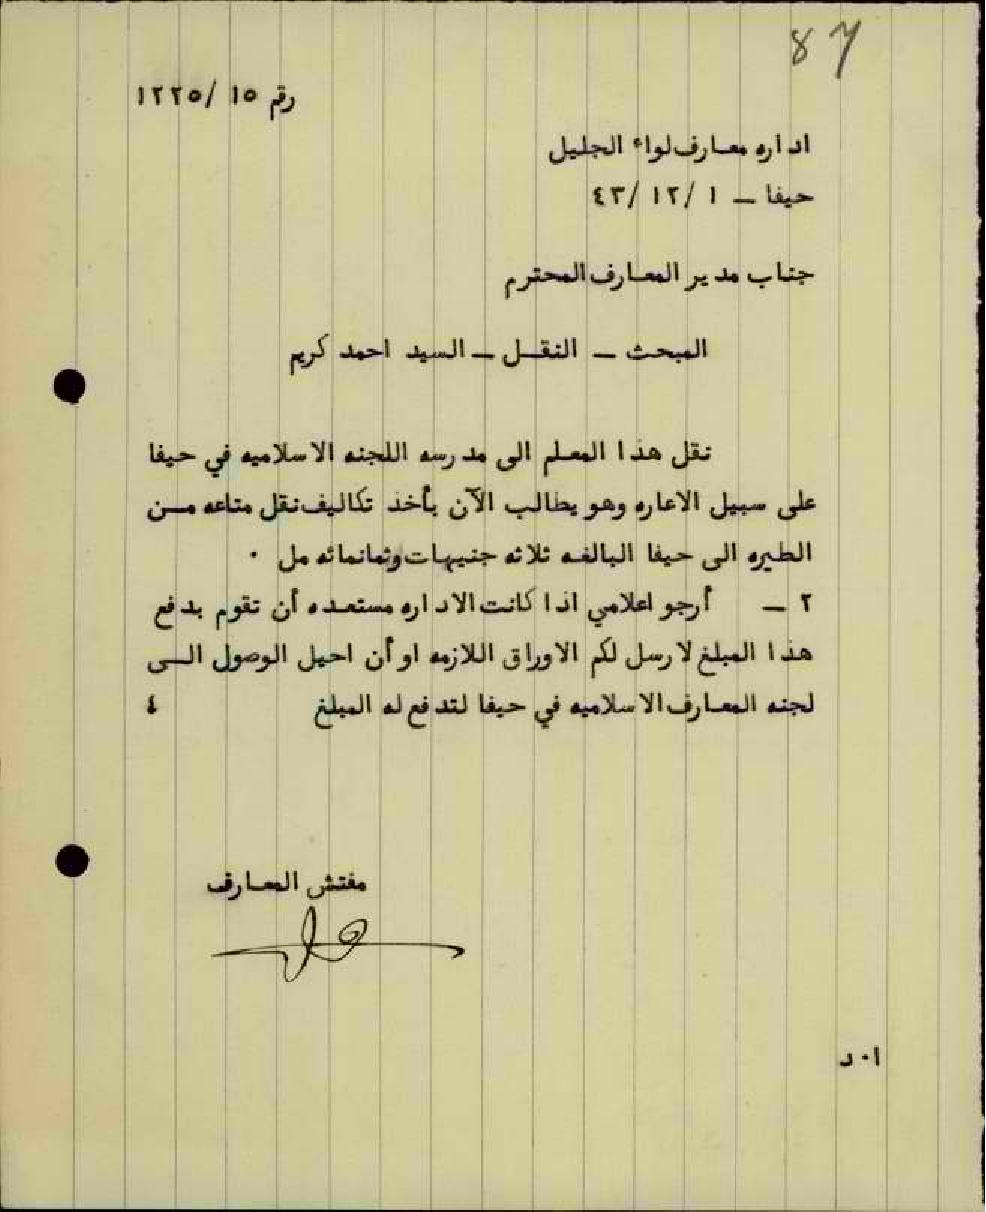 87
رقم ١٥ /١٢٢٥
اداره معارف لواء الجليل
حيفا – ١ /١٢ /٤٣
جناب مدير المعارف المحترم
المبحث – النقل – السيد احمد كريم
نقل هذا المعلم الى مدرسه اللجنه الاسلاميه في حيفا
على سبيل الاعاره وهو يطالب الآن بأخذ تكاليف نقل متاعه من
الطيره الى حيفا البالغه ثلاثه جنيهات وثمانمائه مل ٠
٢ – أرجو اعلامي اذا كانت الاداره مستعده أن تقوم بدفع
هذا المبلغ لارسل لكم الاوراق اللازمه او أن احيل الوصول الى
لجنه المعارف الاسلاميه في حيفا لتدفع له المبلغ ٤
مفتش المعارف
ا٠د